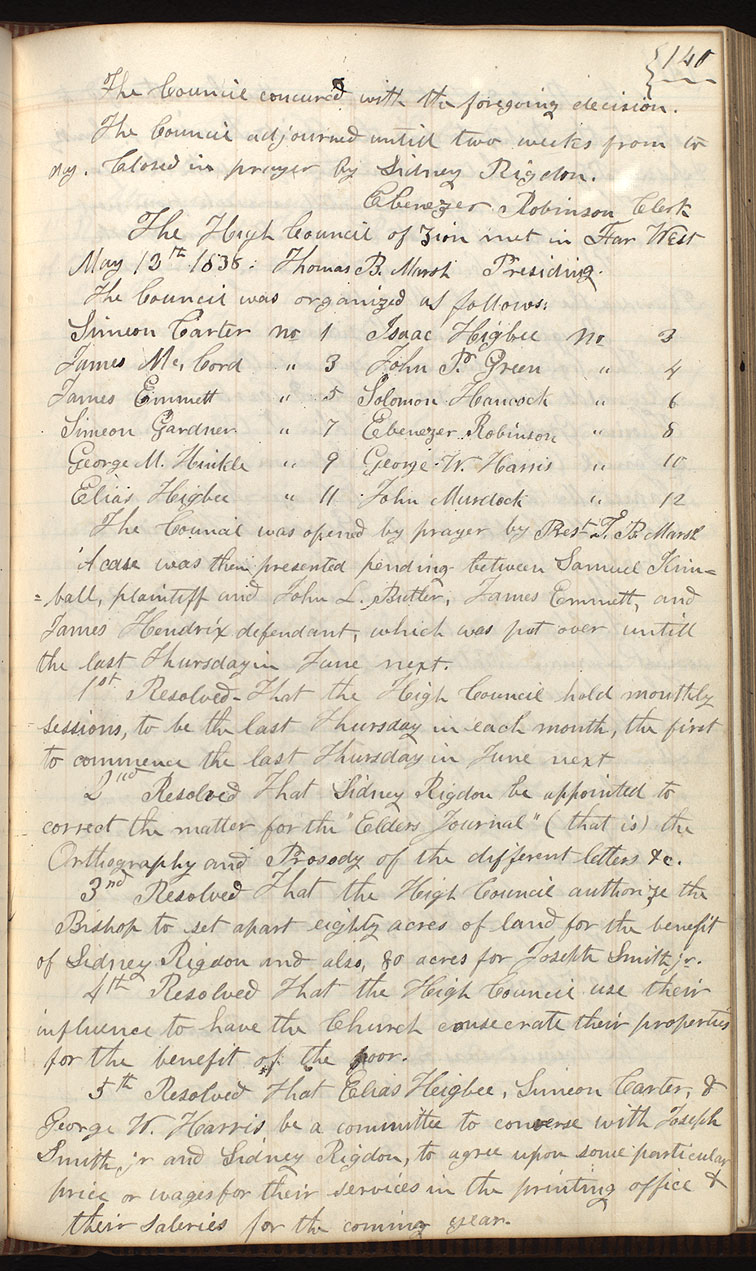 140
The Council concured with the foregoing decision.
The Council adjourned untill two weeks from to
day. Closed in prayer by Sidney Rigdon.
Ebenezer Robinson Clerk
The High Council of Zion met in Far West
May 13th 1838. Thomas B. Marsh Presiding.
The Council was organized as follows:
Simeon Carter no 1 Isaac Higbee no 3
James Mc, Cord " 3 John P. Green " 4
James Emmett " 5 Solomon Hancock " 6
Simeon Gardner " 7 Ebenezer Robinson " 8
George M. Hinkle " 9 George W. Harris " 10
Elias Higbee " 11 John Murdock " 12
The Council was opened by prayer by Prest. T. B. Marsh
A case was then presented pending between Samuel Kim=
=ball, plaintiff and John L. Butler, James Emmett, and
James Hendrix defendant, which was put over untill
the last Thursday in June next.
1st Resolved That the High Council hold monthly
sessions, to be the last Thursday in each month, the first
to commence the last Thursday in June next
2nd Resolved That Sidney Rigdon be appointed to
correct the matter for the "Elders Journal" (that is) the
Orthography and Prosody of the different letters &c.
3nd Resolved That the High Council authorize the
Bishop to set apart eighty acres of land for the benefit
of Sidney Rigdon and also, 80 acres for Joseph Smith jr.
4th Resolved That the High Council use their
influence to have the Church consecrate their properties
for the benefit of the poor.
5th Resolved That Elias Heigbee, Simeon Carter, &
George W. Harris be a committee to converse with Joseph
Smith jr and Sidney Rigdon, to agree upon some particular
price or wages for their services in the printing office &
their saleries for the coming year.